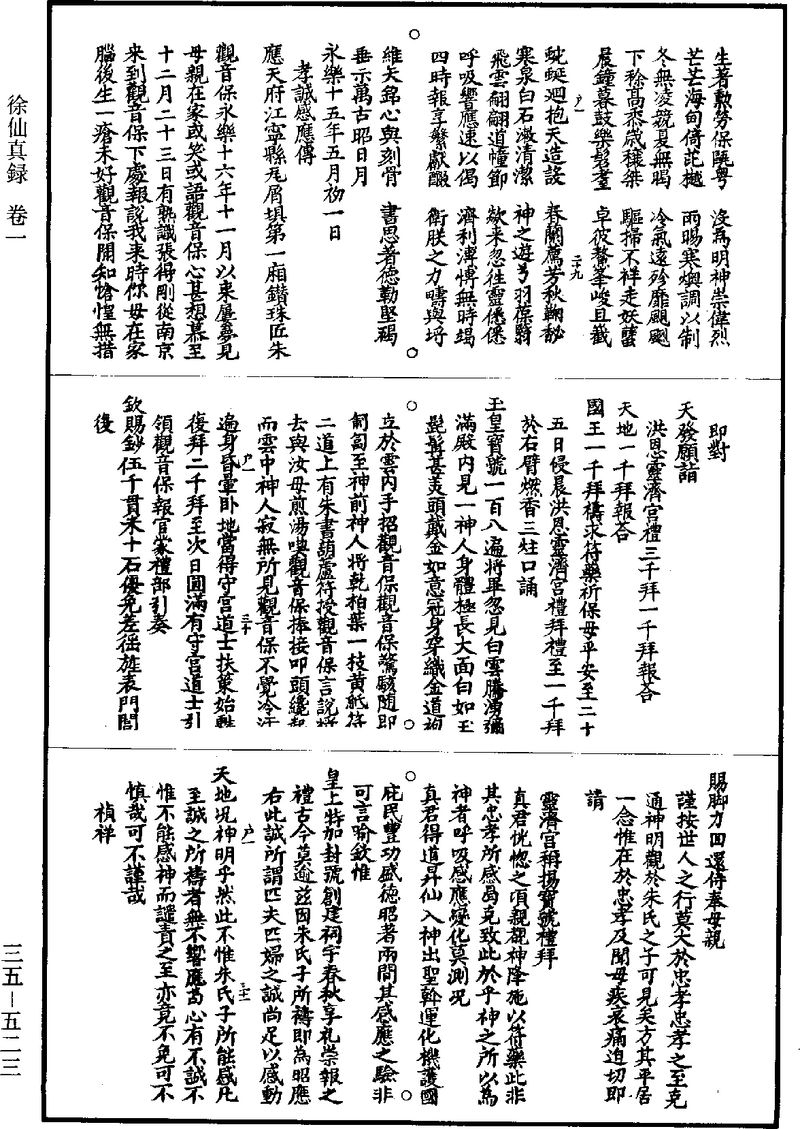 徐仙真録 卷一
三五—五二三
生著勳勞保甌粤 沒為明神崇偉烈
芒芒海甸倚茈樾 雨暘寒燠調以制
冬無凌兢夏無暍 冷氣遠殄靡颮颲
下稔高黍歲穰桀 驅掃不祥走妖蠥
晨鐘暮鼓樂髫耋 卓彼鰲峯峻且巀
蜿蜒迴抱天造設 春蘭薦芳秋鞠馝
寒泉白石激清潔 神之遊兮羽葆翳
飛雲翩翩道幢節 歘来忽徃靈僁僁
呼吸響應速以偈 濟利溥愽無時竭
四時報享繁獻醊 衛朕之力疇與埒
維天銘心與刻骨 書思著徳勤堅碣
垂示萬古昭日月
永樂十五年五月初一日
孝誠感應傳
應天府江寧縣瓦屑填第一廂鑽珠匠朱
觀音保永樂十六年十一月以来屢夢見
母親在家或笑或語觀音保心甚想慕至
十二月二十三日有熟識張得剛從南京
来到觀音保下處報說我来時你母在家
腦後生一瘡未好觀音保聞知愴惶無措
即對
天發願詣
洪恩靈濟宮禮三千拜一千拜報荅
天地一千拜報荅
國王一千拜禱求符藥祈保母平安至二十
五日侵晨洪恩靈濟宮禮拜禮至一千拜
於右臂燃香三炷口誦
玉皇寳號一百八遍將畢忽見白雲騰湧彌
滿殿内見一神人身體極長大面白如玉
髭髯甚美頭戴金如意冠身穿織金道袍
立於雲内手招觀音保觀音保驚駭随即
匍匐至神前神人將乾柏葉一枝黄紙符
二道上有朱書葫蘆符授觀音保言說將
去與汝母煎湯喫觀音保捧接叩頭纔起
而雲中神人寂無所見觀音保不覺冷汗
遍身昏暈卧地當得守宮道士扶策始甦
復拜二千拜至次日圓滿有守宮道士引
領觀音保報官蒙禮部引奏
欽賜鈔伍千貫米十石優免差徭旌表門閭
後
賜脚力回還侍奉母親
謹按世人之行莫大於忠孝忠孝之至克
通神明觀於朱氏之子可見矣方其平居
一念惟在於忠孝及聞母疾哀痛迫切即
請
靈濟宮稱揚寳號禮拜
真君恍惚之項親覩神降施以符藥此非
其忠孝所感曷克致此於乎神之所以為
神者呼吸感應變化莫測况
真君得道昇仙入神出聖斡運化機護國
庇民豐功盛徳昭著兩間其感應之驗非
可言喻欽惟
皇上特加封號創建祠宇春秋享礼崇報之
禮古今莫逾兹因朱氏子所禱即為昭應
右此誠所謂匹夫匹婦之誠尚足以感動
天地况神明乎然此不惟朱氏子所能感凡
至誠之所禱者無不響應苟心有不誠不
惟不能感神而譴責之至亦竟不免可不
慎哉可不謹哉
禎祥